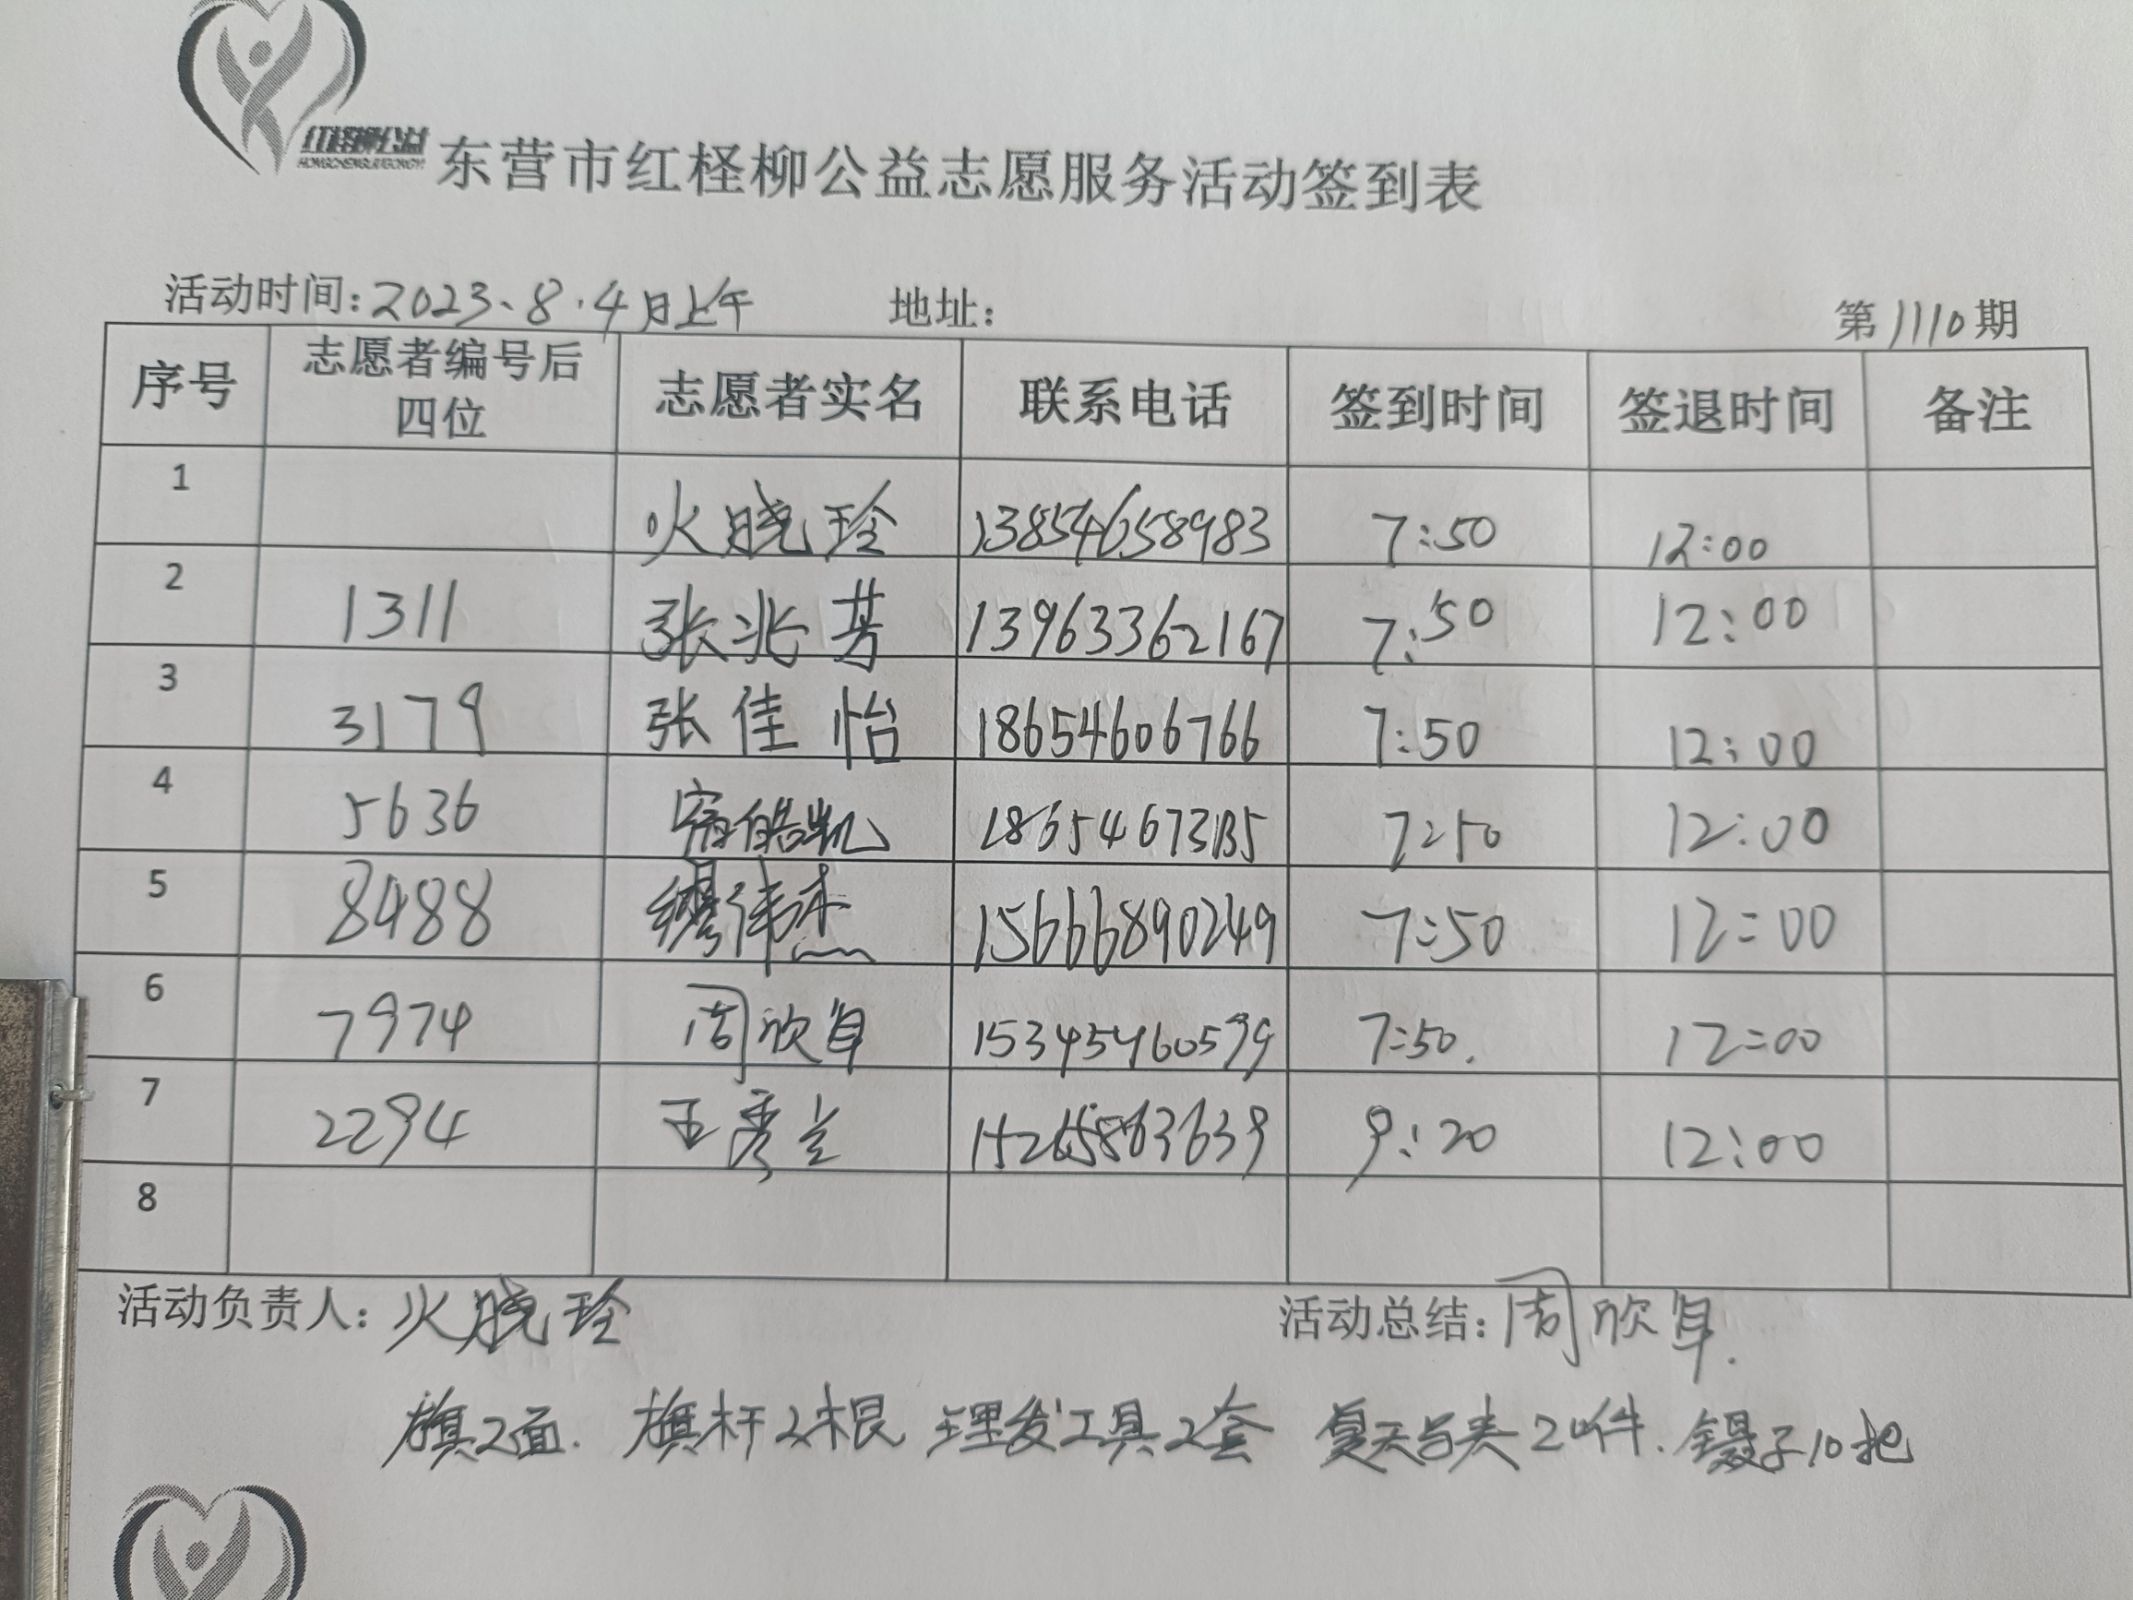 红柽柳公益
东营市红柽柳公益志愿服务活动签到表
活动时间:2023.8.4日上午 地址: 第1110期
序号 志愿者编号后四位 志愿者实名 联系电话 签到时间 签退时间 备注
1 火晓玲 13854658983 7:50 12:00
2 1311 张兆芳 13963362167 7:50 12:00
3 3179 张佳怡 18654606766 7:50 12:00
4 5636 宿皓凯 7:50 12:00
5 8488 缪伟杰 15666890249 7:50 12:00
6 7974 周欣 15345460599 7:50. 12:00
7 2294 王秀兰 15265863639 9:20 12:00
8
活动负责人:火晓玲 活动总结:周欣
旗2面. 旗杆2根 理发工具2套 夏天 2 件. 镊子10把